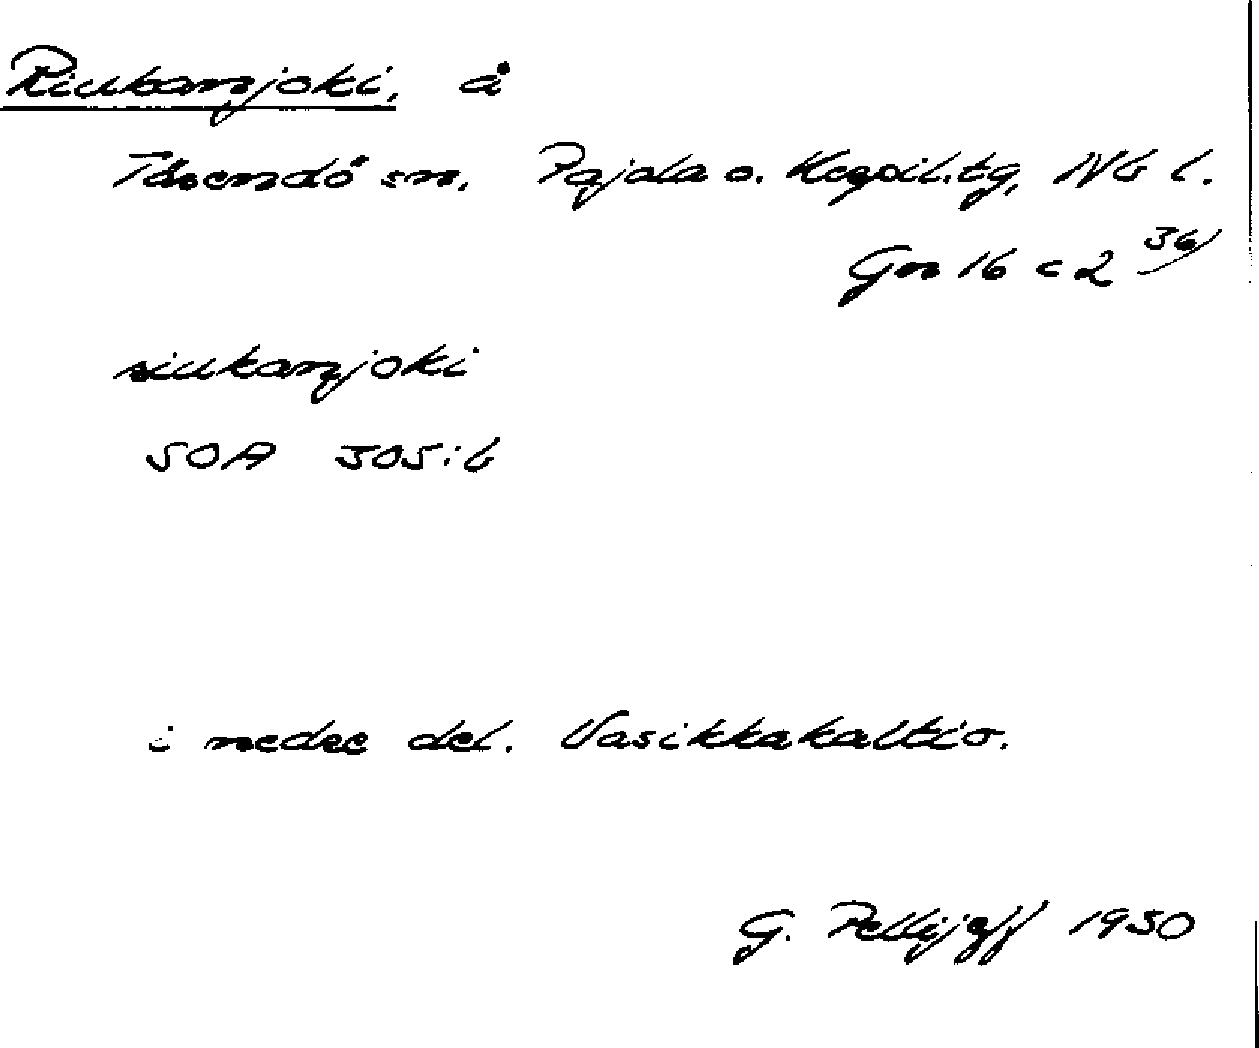 Riukanjoki, å
Tärendö sn. Pajala o. Korpil. tg, Nb l.
Gn 16 c 2 36/
riukanjoki
SOA 305:6
i nedre del. Vasikkakaltio.
G. Pellijeff 1950